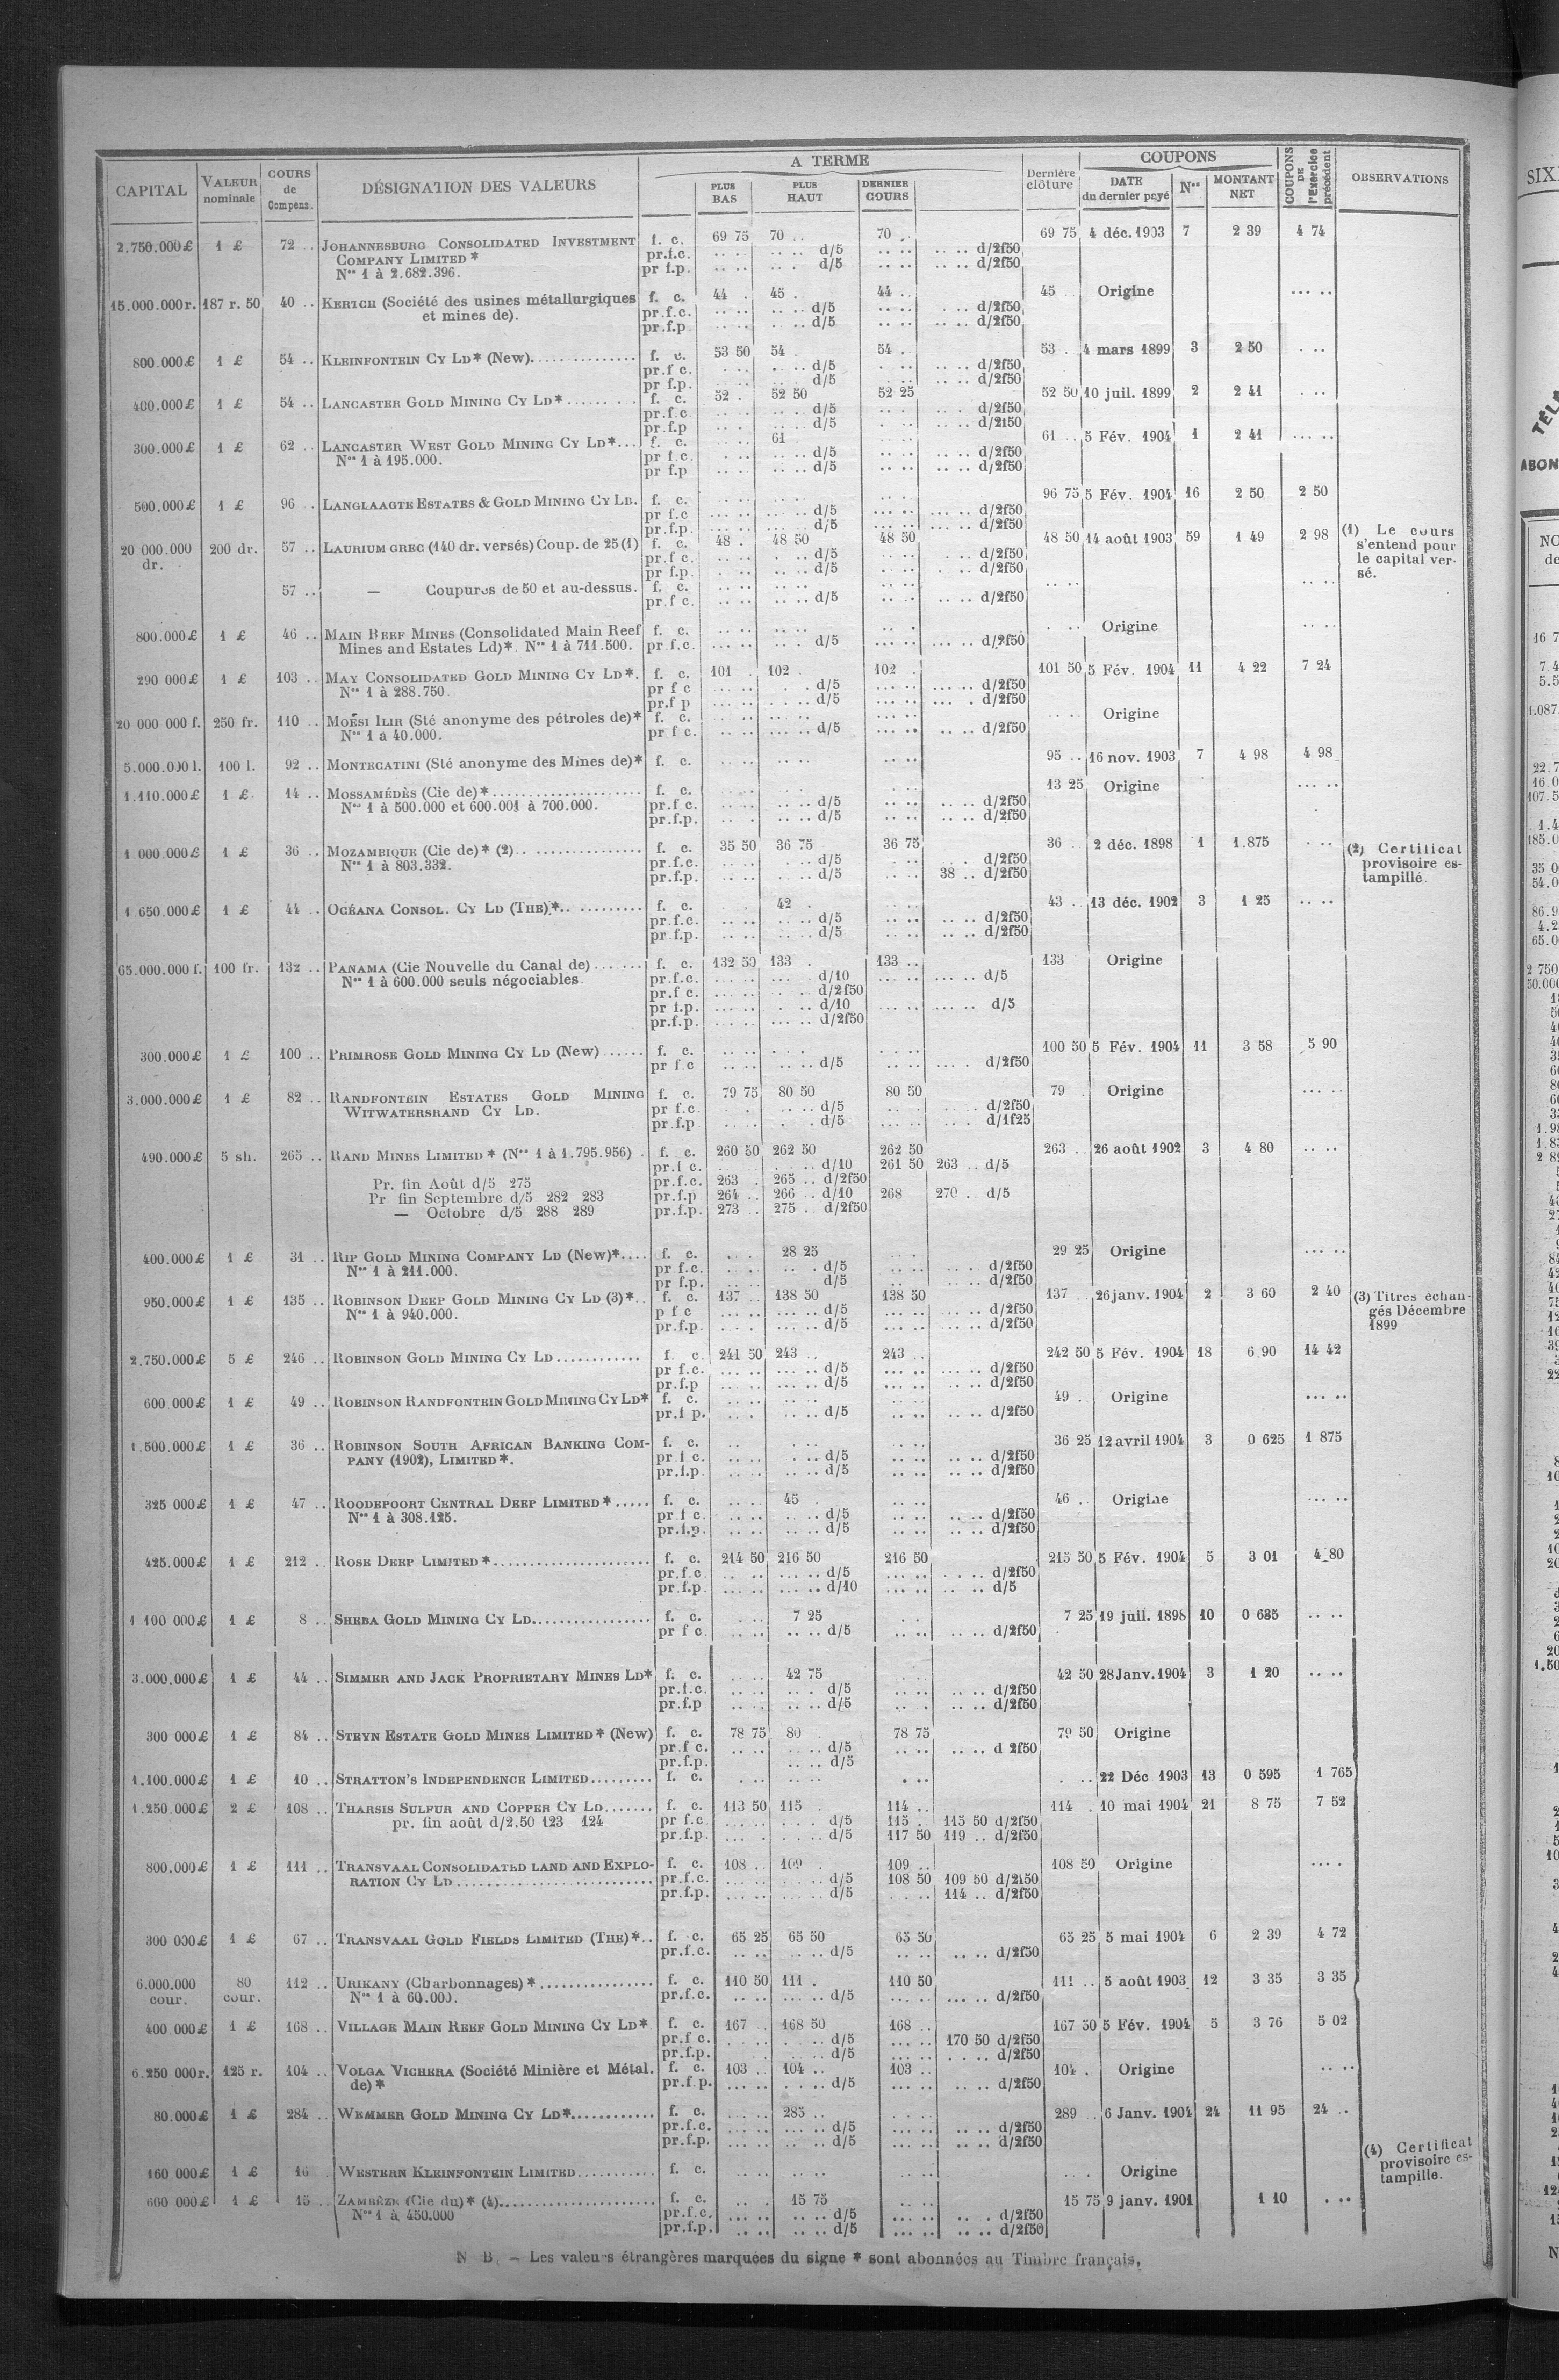 CAPITAL VALEUR nominale COURS de Compens. DÉSIGNATION DES VALEURS A TERME PLUS BAS PLUS HAUT DERNIER COURS Dernière clôture COUPONS DATE du dernier payé Nos MONTANT NET COUPONS DE l'Exercice précédent OBSERVATIONS
2.750.000£ 1 £ 72 .. JOHANNESBURG CONSOLIDATED INVESTMENT f. c. 69 75 70 .. 70 .. 69 75 4 déc. 1903 7 2 39 4 74
COMPANY LIMITED* pr.f.c. d/5 d/2f50
Nos 1 à 2.682.396. pr f.p. d/5 d/2f50
15.000.000r. 187 r. 50 40 .. KERTCH (Société des usines métallurgiques f. c. 44 . 45 . 44 .. 45 .. Origine
et mines de). pr.f.c. d/5 d/2f50
pr.f.p d/5 d/2f50
800.000£ 1 £ 54 .. KLEINFONTEIN CY LD* (New) f. c. 53 50 54 . 54 . 53 . 4 mars 1899 3 2 50
pr.f c. d/5 d/2f50
pr f.p. d/5 d/2f50
400.000£ 1 £ 54 .. LANCASTER GOLD MINING CY LD* f. c. 52 . 52 50 52 25 52 50 10 juil. 1899 2 2 41
pr.f.c d/5 d/2f50
pr.f.p d/5 d/2f50
300.000£ 1 £ 62 .. LANCASTER WEST GOLD MINING CY LD* f. c. 61 61 .. 5 Fév. 1904 1 2 41
Nos 1 à 195.000. pr f.c. d/5 d/2f50
pr f.p d/5 d/2f50
500.000£ 1 £ 96 .. LANGLAAGTE ESTATES & GOLD MINING CY LD. f. c. 96 75 5 Fév. 1904 16 2 50 2 50
pr f.c d/5 d/2f50
pr.f.p. d/5 d/2f50
20 000.000 dr. 200 dr. 57 .. LAURIUM GREC (140 dr. versés) Coup. de 25 (1) f. c. 48 . 48 50 48 50 48 50 14 août 1903 59 1 49 2 98 (1) Le cours s'entend pour le capital versé.
pr.f c. d/5 d/2f50
pr f.p. d/5 d/2f50
57 .. — Coupures de 50 et au-dessus. f. c.
pr.f c. d/5 d/2f50
800.000£ 1 £ 46 .. MAIN REEF MINES (Consolidated Main Reef f. c. Origine
Mines and Estates Ld)*. Nos 1 à 711.500. pr.f.c. d/5 d/2f50
290 000£ 1 £ 103 .. MAY CONSOLIDATED GOLD MINING CY LD*. f. c. 101 . 102 . 102 . 101 50 5 Fév. 1904 11 4 22 7 24
Nos 1 à 288.750. pr f c d/5 d/2f50
pr.f p d/5 d/2f50
20 000 000 f. 250 fr. 110 .. MOÉSI ILIR (Sté anonyme des pétroles de)* f. c. Origine
Nos 1 a 40.000. pr f c. d/5 d/2f50
5.000.000 l. 100 l. 92 .. MONTECATINI (Sté anonyme des Mines de)* f. c. 95 .. 16 nov. 1903 7 4 98 4 98
1.110.000£ 1 £ 14 .. MOSSAMÉDÈS (Cie de)* f. c. 13 25 Origine
Nos 1 à 500.000 et 600.001 à 700.000. pr.f c. d/5 d/2f50
pr.f.p. d/5 d/2f50
1 000.000£ 1 £ 36 .. MOZAMBIQUE (Cie de)* (2) f. c. 35 50 36 75 36 75 36 .. 2 déc. 1898 1 1.875 (2) Certificat provisoire estampillé.
Nos 1 à 803.332. pr.f.c. d/5 d/2f50
pr.f.p. d/5 38 .. d/2f50
1 650.000£ 1 £ 44 .. OCÉANA CONSOL. CY LD (THE)* f. c. 42 . 43 .. 13 déc. 1902 3 1 25
pr.f.c. d/5 d/2f50
pr.f.p. d/5 d/2f50
65.000.000 f. 100 fr. 132 .. PANAMA (Cie Nouvelle du Canal de) f. c. 132 50 133 . 133 .. 133 Origine
Nos 1 à 600.000 seuls négociables. pr.f.c. d/10 d/5
pr.f c. d/2f50
pr f.p. d/10 d/5
pr.f.p. d/2f50
300.000£ 1 £ 100 .. PRIMROSE GOLD MINING CY LD (New) f. c. 100 50 5 Fév. 1904 11 3 58 5 90
pr f.c d/5 d/2f50
3.000.000£ 1 £ 82 .. RANDFONTEIN ESTATES GOLD MINING f. c. 79 75 80 50 80 50 79 Origine
WITWATERSRAND CY LD. pr f.c. d/5 d/2f50
pr.f.p d/5 d/1f25
490.000£ 5 sh. 265 .. RAND MINES LIMITED* (Nos 1 à 1.795.956) f. c. 260 50 262 50 262 50 263 .. 26 août 1902 3 4 80
pr.f c. d/10 261 50 263 .. d/5
Pr. fin Août d/5 275 pr.f.c. 263 . 265 .. d/2f50
Pr fin Septembre d/5 282 283 pr.f.p 264 .. 266 .. d/10 268 270 .. d/5
— Octobre d/5 288 289 pr.f.p. 273 .. 275 . d/2f50
400.000£ 1 £ 31 .. RIP GOLD MINING COMPANY LD (New)* f. c. 28 25 29 25 Origine
Nos 1 à 211.000. pr f.c. d/5 d/2f50
pr f.p. d/5 d/2f50
950.000£ 1 £ 135 .. ROBINSON DEEP GOLD MINING CY LD (3)* f. c. 137 .. 138 50 138 50 137 .. 26 janv. 1904 2 3 60 2 40 (3) Titres échangés Décembre 1899
Nos 1 à 940.000. p f c d/5 d/2f50
pr.f.p. d/5 d/2f50
2.750.000£ 5 £ 246 .. ROBINSON GOLD MINING CY LD f. c. 241 50 243 .. 243 .. 242 50 5 Fév. 1904 18 6.90 14 42
pr f.c. d/5 d/2f50
pr.f.p d/5 d/2f50
600.000£ 1 £ 49 .. ROBINSON RANDFONTEIN GOLD MINING CY LD* f. c. 49 .. Origine
pr.f p. d/5 d/2f50
1.500.000£ 1 £ 36 .. ROBINSON SOUTH AFRICAN BANKING COM- f. c. 36 25 12 avril 1904 3 0 625 1 875
PANY (1902), LIMITED*. pr f c. d/5 d/2f50
pr.f.p d/5 d/2f50
325 000£ 1 £ 47 .. ROODEPOORT CENTRAL DEEP LIMITED* f. c. 45 . 46 . Origine
Nos 1 à 308.125. pr f c. d/5 d/2f50
pr.f.p. d/5 d/2f50
425.000£ 1 £ 212 .. ROSE DEEP LIMITED* f. c. 214 50 216 50 216 50 215 50 5 Fév. 1904 5 3 01 4 80
pr.f.c d/5 d/2f50
pr.f.p. d/10 d/5
1 100 000£ 1 £ 8 .. SHEBA GOLD MINING CY LD f. c. 7 25 7 25 19 juil. 1898 10 0 635
pr f c. d/5 d/2f50
3.000.000£ 1 £ 44 .. SIMMER AND JACK PROPRIETARY MINES LD* f. c. 42 75 42 50 28 Janv. 1904 3 1 20
pr.f.c. d/5 d/2f50
pr.f.p d/5 d/2f50
300 000£ 1 £ 84 .. STEYN ESTATE GOLD MINES LIMITED* (New) f. c. 78 75 80 . 78 75 79 50 Origine
pr.f c. d/5 d 2f50
pr.f.p. d/5
1.100.000£ 1 £ 10 .. STRATTON'S INDEPENDENCE LIMITED f. c. 22 Déc 1903 13 0 595 1 765
1.250.000£ 2 £ 108 .. THARSIS SULFUR AND COPPER CY LD f. c. 113 50 115 . 114 .. 114 . 10 mai 1904 21 8 75 7 52
pr. fin août d/2.50 123 124 pr f.c d/5 115 . 115 50 d/2f50
pr.f.p. d/5 117 50 119 .. d/2f50
800.000£ 1 £ 111 .. TRANSVAAL CONSOLIDATED LAND AND EXPLO- f. c. 108 .. 109 . 109 .. 108 50 Origine
RATION CY LD pr.f.c. d/5 108 50 109 50 d/2f50
pr.f.p. d/5 114 .. d/2f50
300 000£ 1 £ 67 .. TRANSVAAL GOLD FIELDS LIMITED (THE)* f. c. 65 25 65 50 65 50 65 25 5 mai 1904 6 2 39 4 72
pr.f.c. d/5 d/2f50
6.000.000 cour. 80 cour. 112 .. URIKANY (Charbonnages)* f. c. 110 50 111 . 110 50 111 .. 5 août 1903 12 3 35 3 35
Nos 1 à 60.000. pr.f.c. d/5 d/2f50
400.000£ 1 £ 168 .. VILLAGE MAIN REEF GOLD MINING CY LD* f. c. 167 .. 168 50 168 .. 167 50 5 Fév. 1904 5 3 76 5 02
pr.f c. d/5 170 50 d/2f50
pr.f.p. d/5 d/2f50
6.250 000r. 125 r. 104 .. VOLGA VICHERA (Société Minière et Métal. f. c. 103 .. 104 .. 103 .. 104 . Origine
de)* pr.f.p. d/5 d/2f50
80.000£ 1 £ 284 .. WEMMER GOLD MINING CY LD* f. c. 285 .. 289 .. 6 Janv. 1904 24 11 95 24 ..
pr.f.c. d/5 d/2f50
pr.f.p. d/5 d/2f50
160 000£ 1 £ 16 .. WESTERN KLEINFONTEIN LIMITED f. c. Origine
600 000£ 1 £ 15 .. ZAMBÈZE (Cie du)* (4) f. c. 15 75 15 75 9 janv. 1901 1 10 (4) Certificat provisoire estampillé.
Nos 1 à 450.000 pr.f.c. d/5 d/2f50
pr.f.p. d/5 d/2f50
N B. — Les valeurs étrangères marquées du signe * sont abonnées au Timbre français.